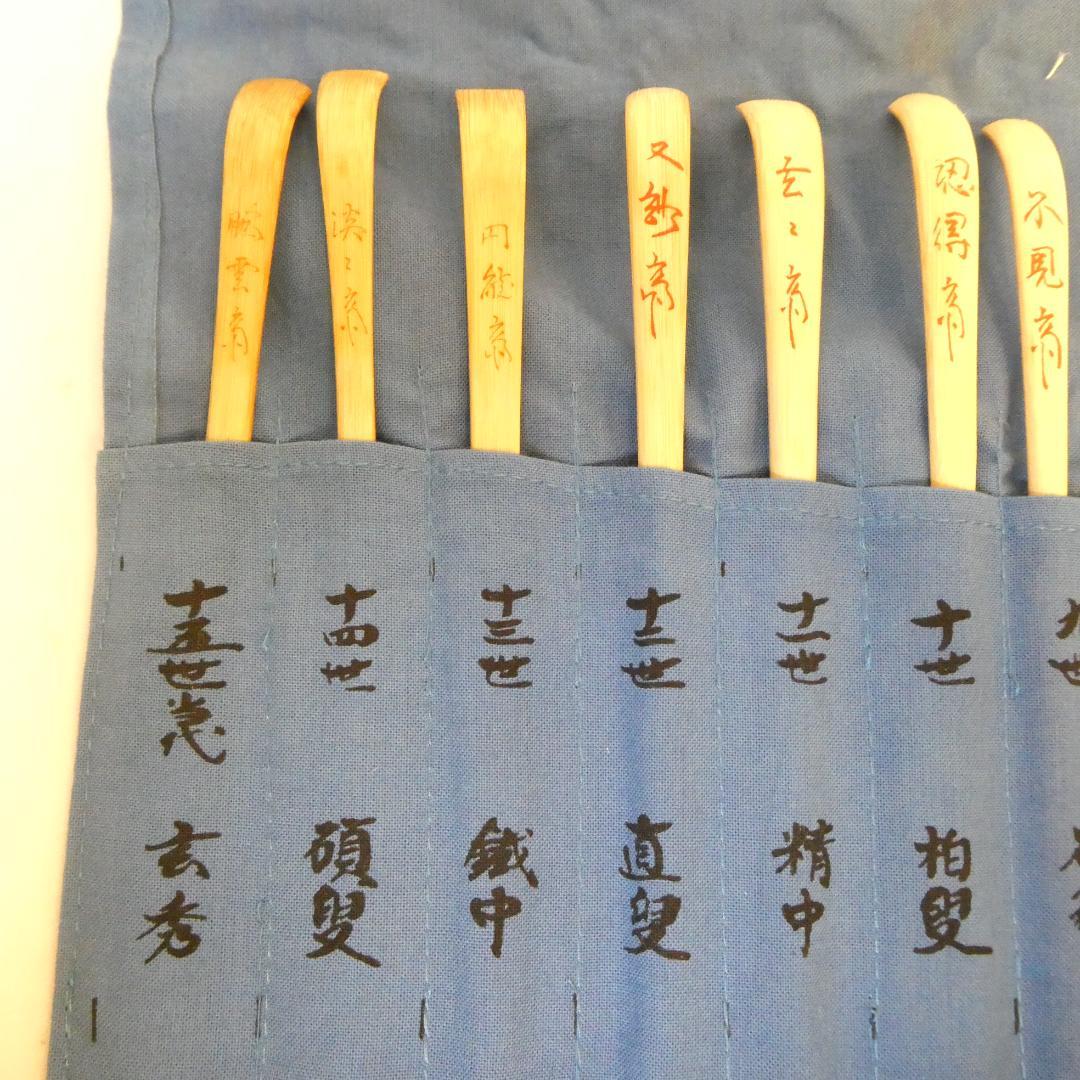 不見斎
認得斎
玄々斎
又玅斎
円能斎
淡々斎
鵬雲斎
九世
十世
柏叟
十一世
精中
十二世
直叟
十三世
鐵中
十四世
碩叟
十五世
玄秀